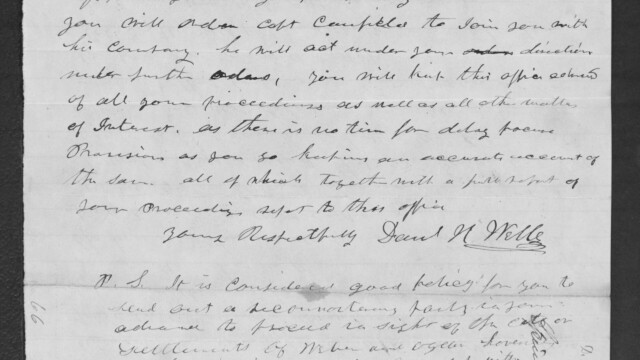 you will order Capt Canfield to Join you with
his Company. he will act under your direction
under further orders, you will keep this office advised
of all your proceedings as well as all other matters
of Interest. as there is no time for delay
Provisions as you go keeping an accurate account of
the same all of which together with a full report of
your proceedings report to this office
yours Respectfully Danl H Wells
P. S. It is considered good policy for you to
send out a reconnoitering party in your
advance to proceed in sight of the
settlements of Weber and Ogden
66